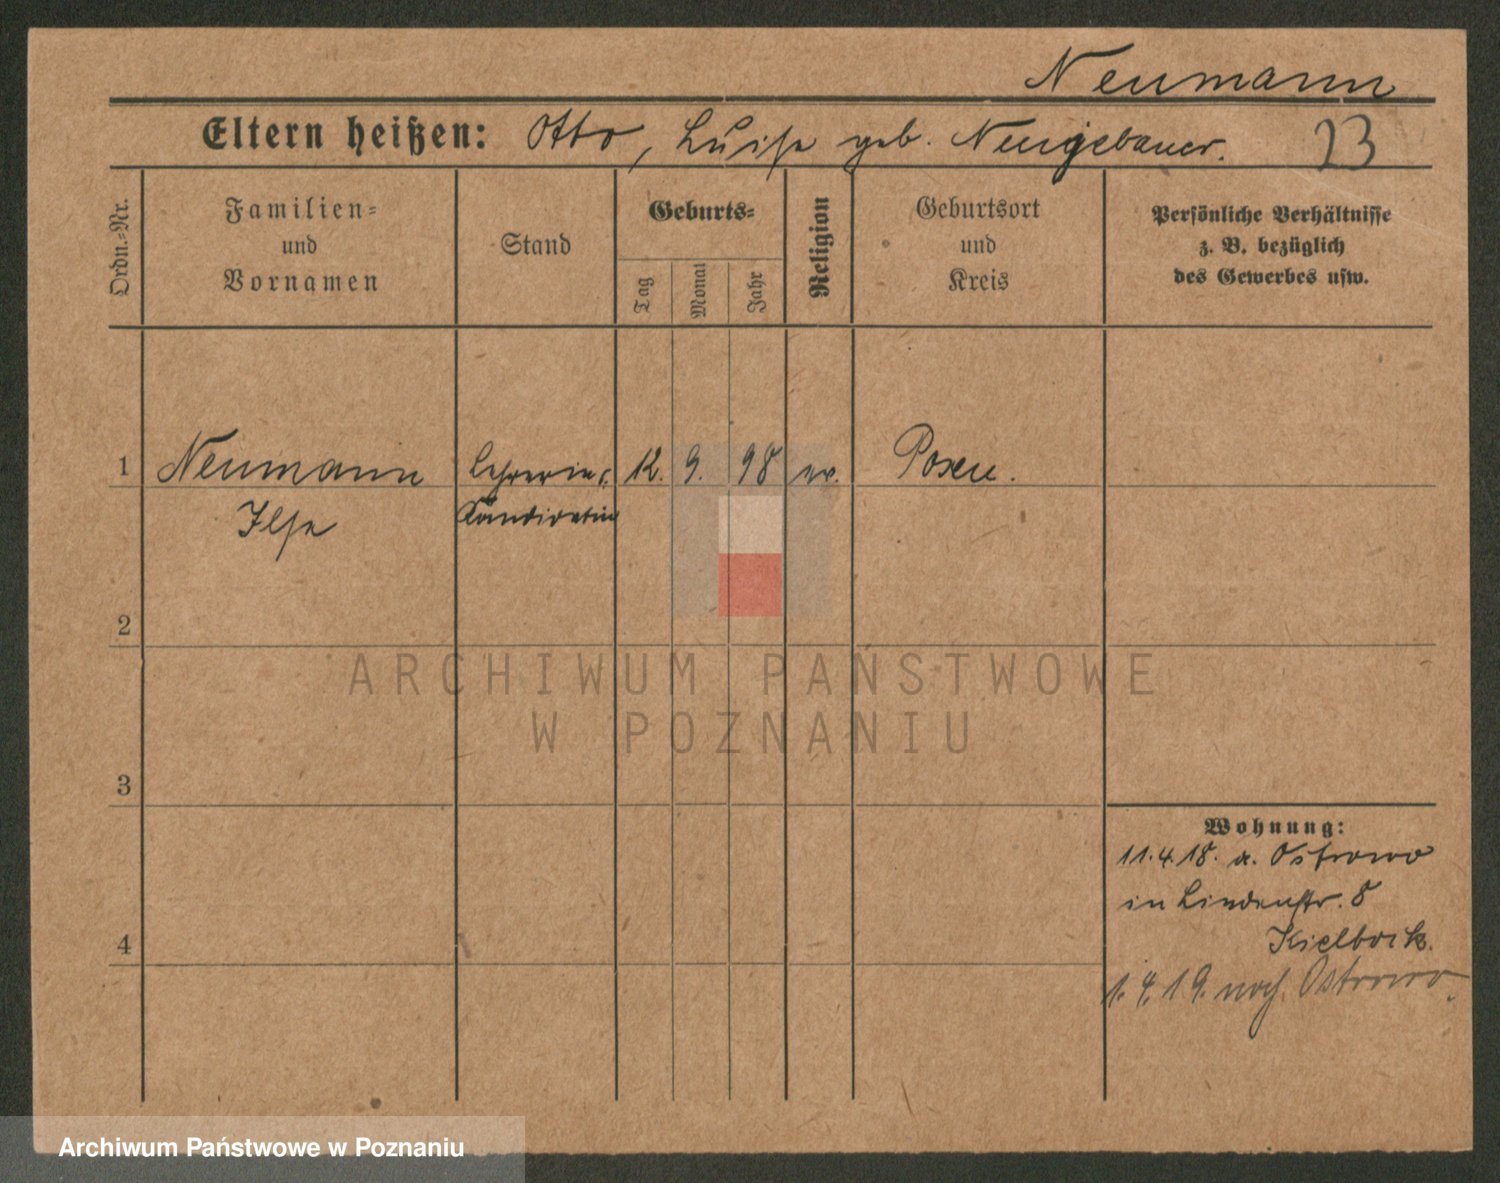 Neumann
Eltern heißen: Otto, Luise geb. Neugebauer. 23
Ordn.=Nr.
Familien=
und
Vornamen
Stand
Geburts=
Tag
Monat
Jahr
Religion
Geburtsort
und
Kreis
Persönliche Verhältnisse
z. B. bezüglich
des Gewerbes usw.
1 Neumann Lehrerin 12. 9. 98 ev. Posen.
Ilse Kandidatin
2
ARCHIWUM PAŃSTWOWE
W POZNANIU
3
Wohnung:
11.4.18. a. Ostrowo
in Lindenstr. 8
4
1.4.19. nach Ostrowo.
Archiwum Państwowe w Poznaniu